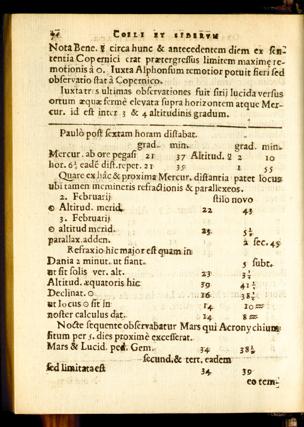 COELI ET SIDERVM
Nota Bene. ☿ circa hunc & antecedentem diem ex sen-
tentia Copernici erat prætergressus limitem maximę re-
motionis à ☉. Iuxta Alphonsum remotior potuit fieri sed
observatio stat à Copernico.
Iuxta tris ultimas observationes fuit stri lucida versus
ortum æquæ fermè elevata supra horizontem atque Mer-
cur. id est inter 3 & 4 altitudinis gradum.
Paulò post sextam horam distabat.
grad. min. grad. min.
Mercur. ab ore pegasi 21 37 Altitud. ☿ 2 10
hor. 6½ cadē dist. reper. 21 35 1 55
Quare ex hâc & proximâ Mercur. distantia patet locus
ubi tamen memineris refractionis & parallexeos.
2. Februarij stilo novo
☉ Altitud. merid. 22 43
3. Februarij
☉ altitud merid. 23
parallax. adden. 2 sec. 45
Refraxio hic major est quam in
Dania 2 minut. ut fiant. 5 subt.
ut sit solis ver. alt. 23
Altitud. æquatoris hic 39
Declinat. ☉ 16
ut locus ☉ sit in 14 10 ♒
noster calculus dat. 14 8 ♒
Nocte sequente observabatur Mars qui Acronychium
situm per 5. dies proximè excesserat.
Mars & Lucid. ped. Gem. 34
secund. & tert. eadem
sed limitata est 34 39
eo tem-